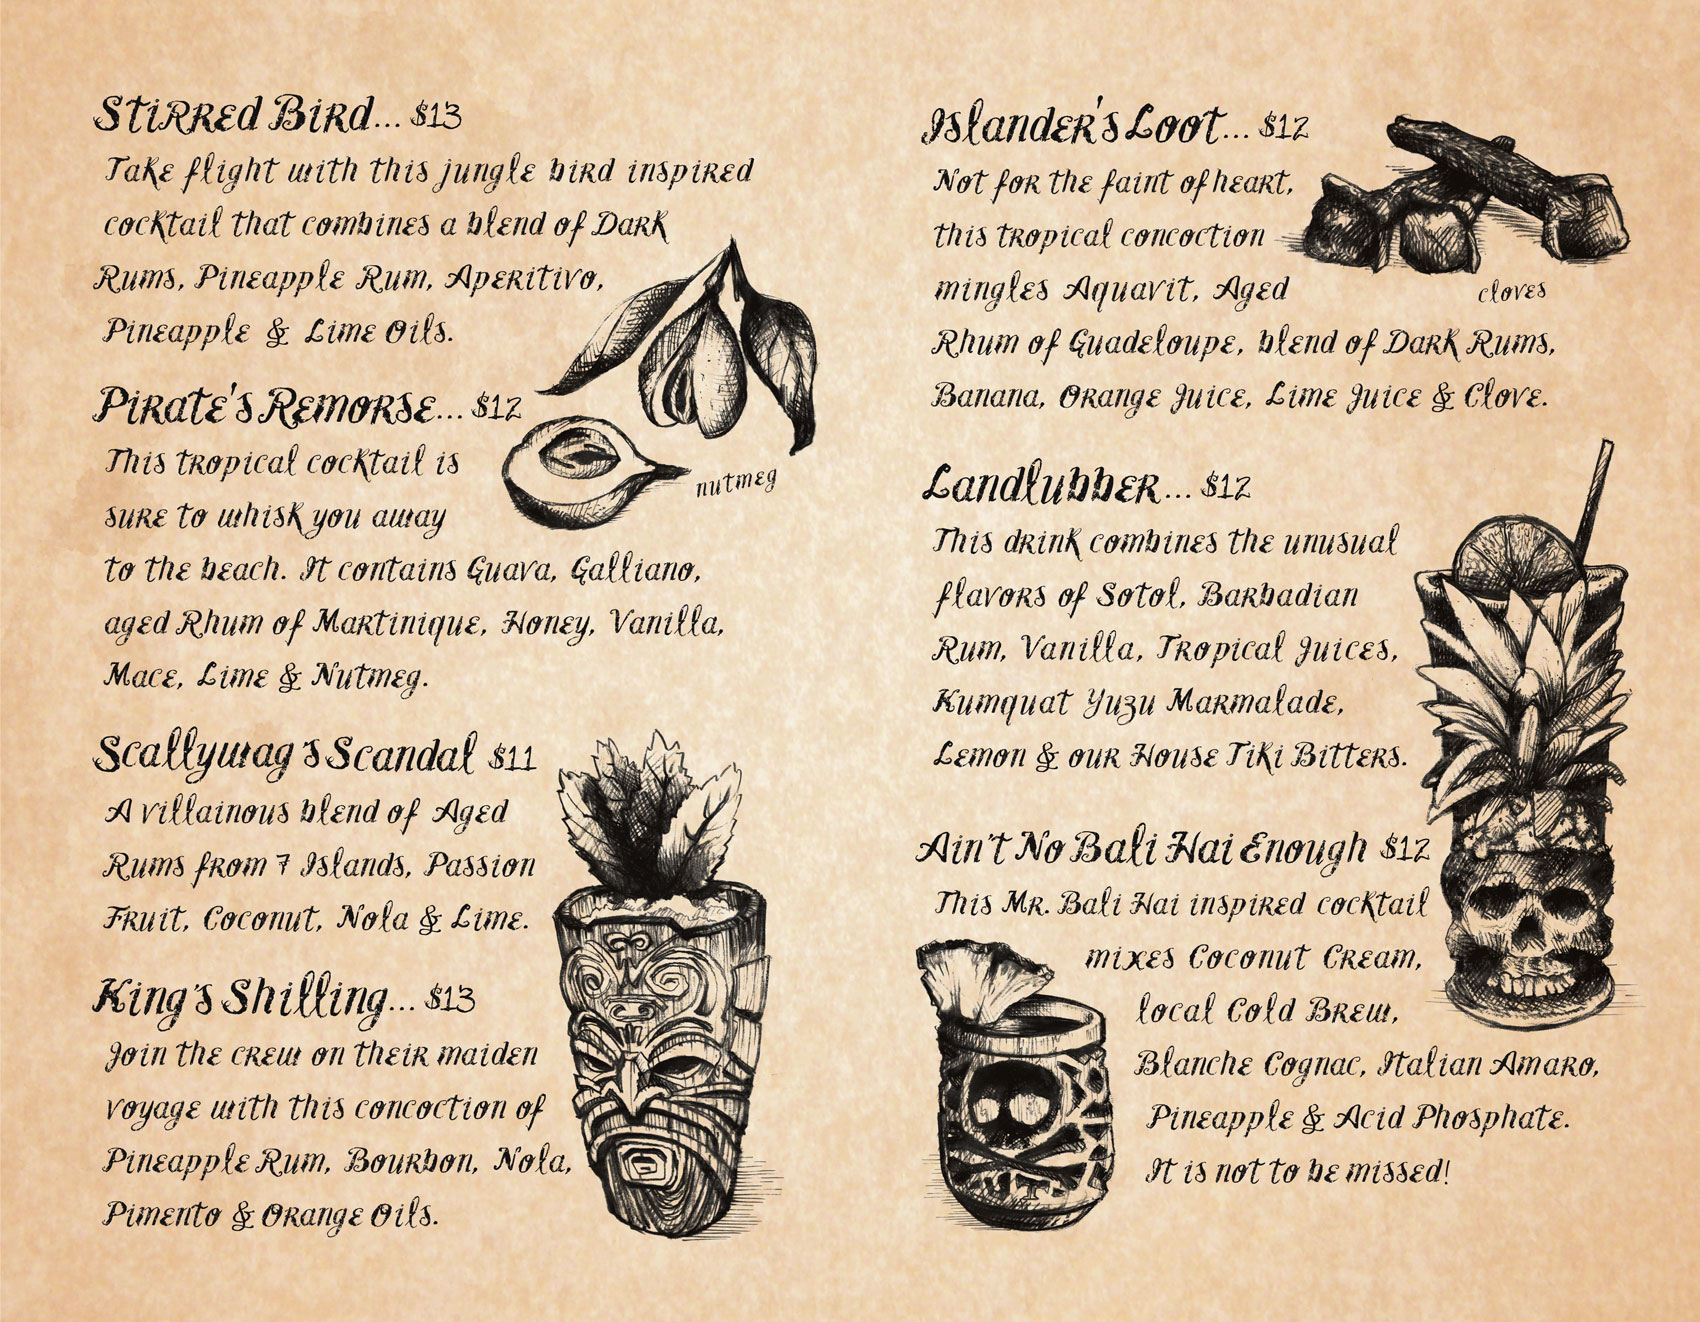 Stirred Bird... $13
Take flight with this jungle bird inspired
cocktail that combines a blend of Dark
Rums, Pineapple Rum, Aperitivo,
Pineapple & Lime Oils.
Pirate's Remorse... $12
This tropical cocktail is
sure to whisk you away
to the beach. It contains Guava, Galliano,
aged Rhum of Martinique, Honey, Vanilla,
Mace, Lime & Nutmeg.
nutmeg
Scallywag's Scandal $11
A villainous blend of Aged
Rums from 7 Islands, Passion
Fruit, Coconut, Nola & Lime.
King's Shilling... $13
Join the crew on their maiden
voyage with this concoction of
Pineapple Rum, Bourbon, Nola,
Pimento & Orange Oils.
Islander's Loot... $12
Not for the faint of heart,
this tropical concoction
mingles Aquavit, Aged
Rhum of Guadeloupe, blend of Dark Rums,
Banana, Orange Juice, Lime Juice & Clove.
cloves
Landlubber... $12
This drink combines the unusual
flavors of Sotol, Barbadian
Rum, Vanilla, Tropical Juices,
Kumquat Yuzu Marmalade,
Lemon & our House Tiki Bitters.
Ain't No Bali Hai Enough $12
This Mr. Bali Hai inspired cocktail
mixes Coconut Cream,
local Cold Brew,
Blanche Cognac, Italian Amaro,
Pineapple & Acid Phosphate.
It is not to be missed!